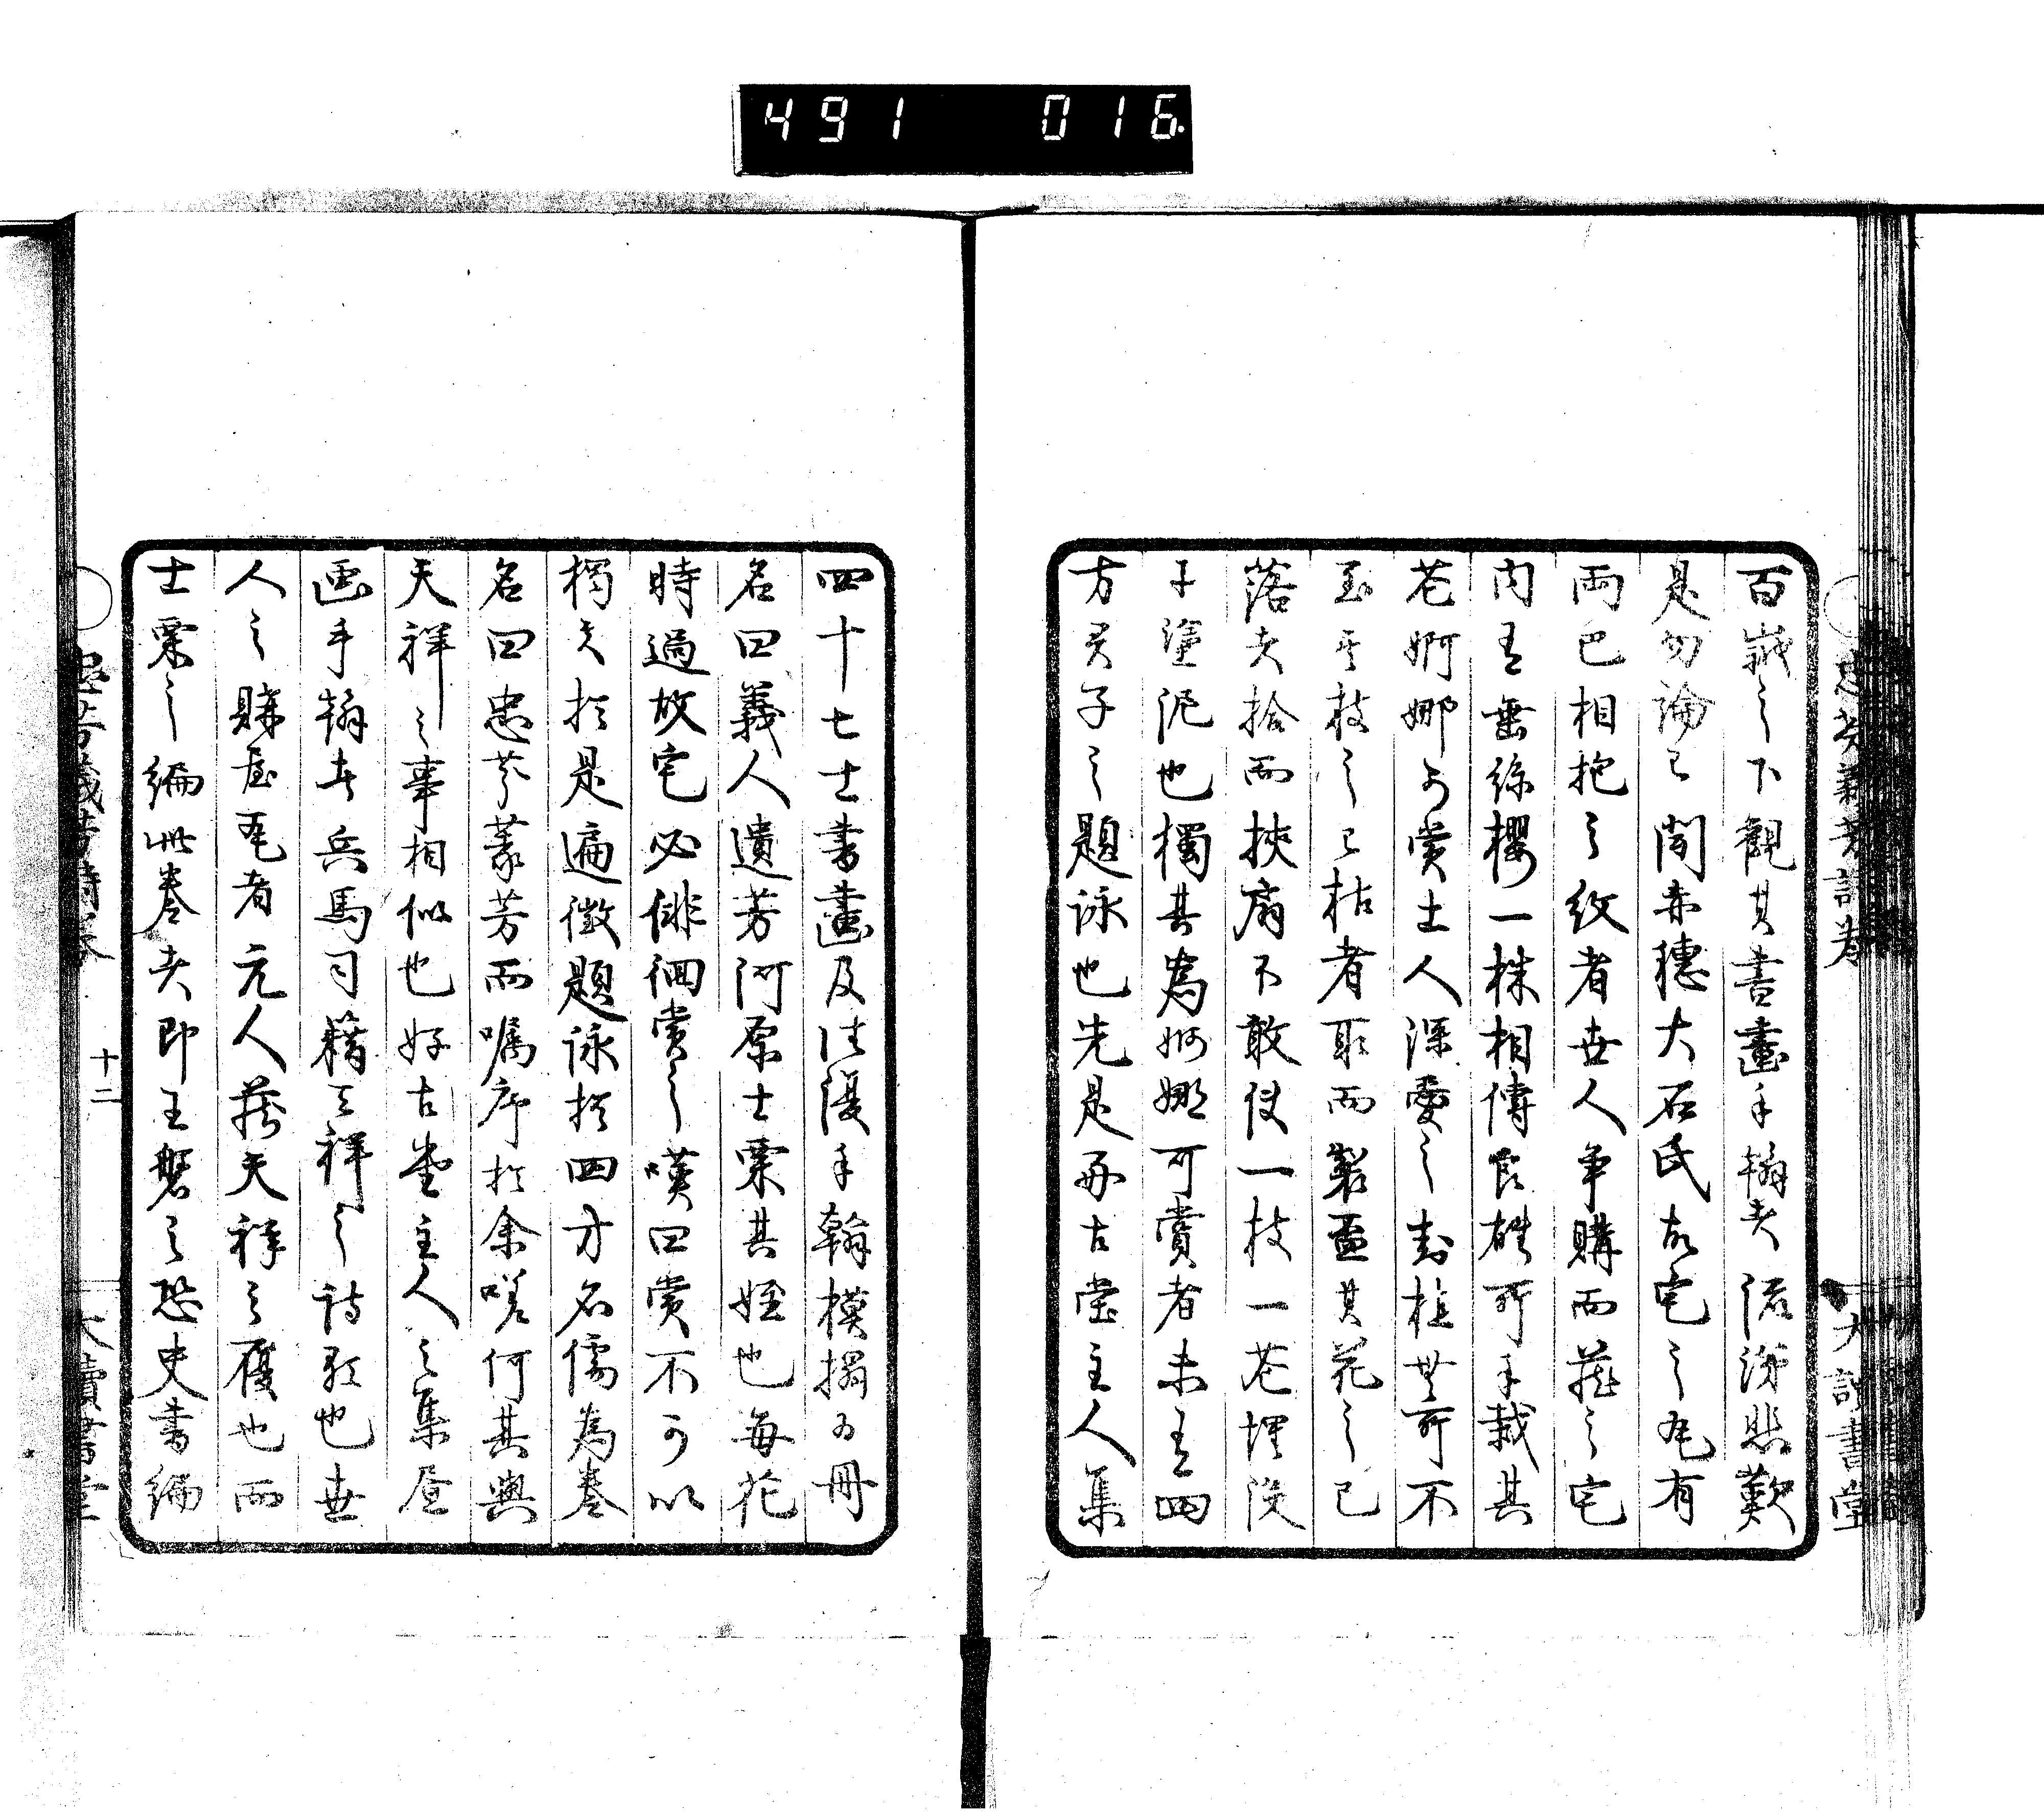 491 016.
忠芬義芳詩卷
大讀書堂
百歳之下觀其書畫手翰者流涕悲歎
是勿論已聞赤穗大石氏故宅之瓦有
両巴相抱之紋者世人争購而藏之宅
内有垂絲櫻一株相傳良雄所手栽其
花婀娜可賞土人深愛之封植無所不
至其枝之已枯者取而製匣其花之已
落者拾而挾扇不敢使一枝一花埋没
于塗泥也獨其為婀娜可賞者未有四
方君子之題詠也先是好古堂主人集
四十七士書畫及往復手翰模搨為冊
名曰義人遺芳河原士栗其姪也毎花
時過故宅必徘徊賞之嘆曰賞不可以
獨矣於是遍徴題詠於四方名儒為卷
名曰忠芬義芳而嘱序於余嗟何其與
天祥之事相似也好古堂主人之集届
画手翰者兵馬司籍天祥之詩歌也世
人之購屋瓦者元人藏天祥之履也而
士栗之編此卷者即王磐之恐史書編
忠芬義芳詩卷
十二
大讀書堂